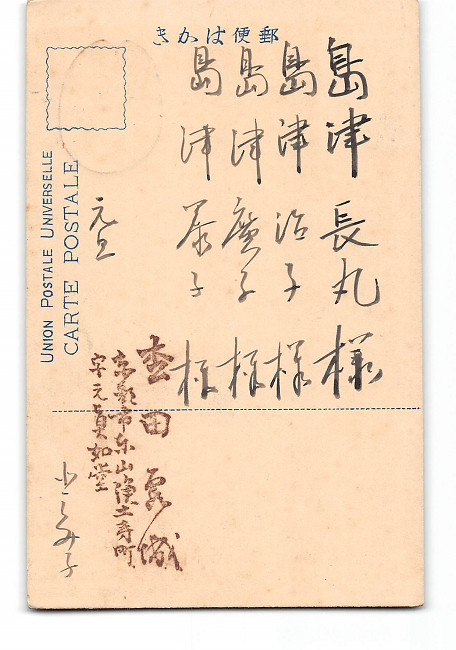 郵便はかき
UNION POSTALE UNIVERSELLE
CARTE POSTALE
島津長丸様
島津治子様
島津廣子様
島津泰子様
元旦
田
京都市東山浄土寺町
字元真如堂